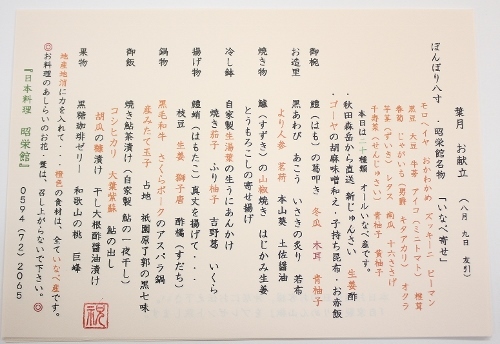 葉月 お献立 (八月 九日 友引)
ぼんぼり八寸 ・昭栄館名物 「いなべ寄せ」
モロヘイヤ おかわかめ ズッキーニ ピーマン
黒豆 大豆 牛蒡 アイコ(ミニトマト) 椎茸
春菊 じゃがいも(男爵 キタアカリ) オクラ
芋茎(ずいき) レタス 胡瓜 十六ささげ
千寿菜(せんじゅさい) 青柚子 黄柚子
本日は二十種類 オールいなべ産です。
・秋田森岳から直送 新じゅんさい 生姜酢
・ゴーヤの胡麻味噌和え・子持ち昆布・お赤飯
御椀 鱧(はも)の葛叩き 冬瓜 木耳 青柚子
お造里 黒あわび あこう いさきの炙り 若布
より人参 茗荷 本山葵 土佐醤油
焼き物 鱸(すずき)の山椒焼き はじかみ生姜
とうもろこしの寄せ揚げ
冷し鉢 自家製生湯葉の生うにあんかけ
焼き茄子 ふり柚子 吉野葛 いくら
揚げ物 鱧蛸(はもたこ)真丈を揚げて・・・
枝豆 生姜 獅子唐 酢橘(すだち)
鍋物 黒毛和牛 さくらポークのアスパラ鍋
産みたて玉子 占地 祇園原了郭の黒七味
御飯 焼き鮎茶漬け(自家製 鮎の一夜干し)
コシヒカリ 大葉紫蘇 鮎の出し
胡瓜の糠漬け 干し大根酢醤油漬け
果物 黒糖珈琲ゼリー 和歌山の桃 巨峰
地産地消に力を入れて・・・橙色の食材は、全ていなべ産です。
◎お料理のあしらいのお花・葉は、召し上がらないで下さい。◎
『日本料理 昭栄館』 0594(72)2065
祝